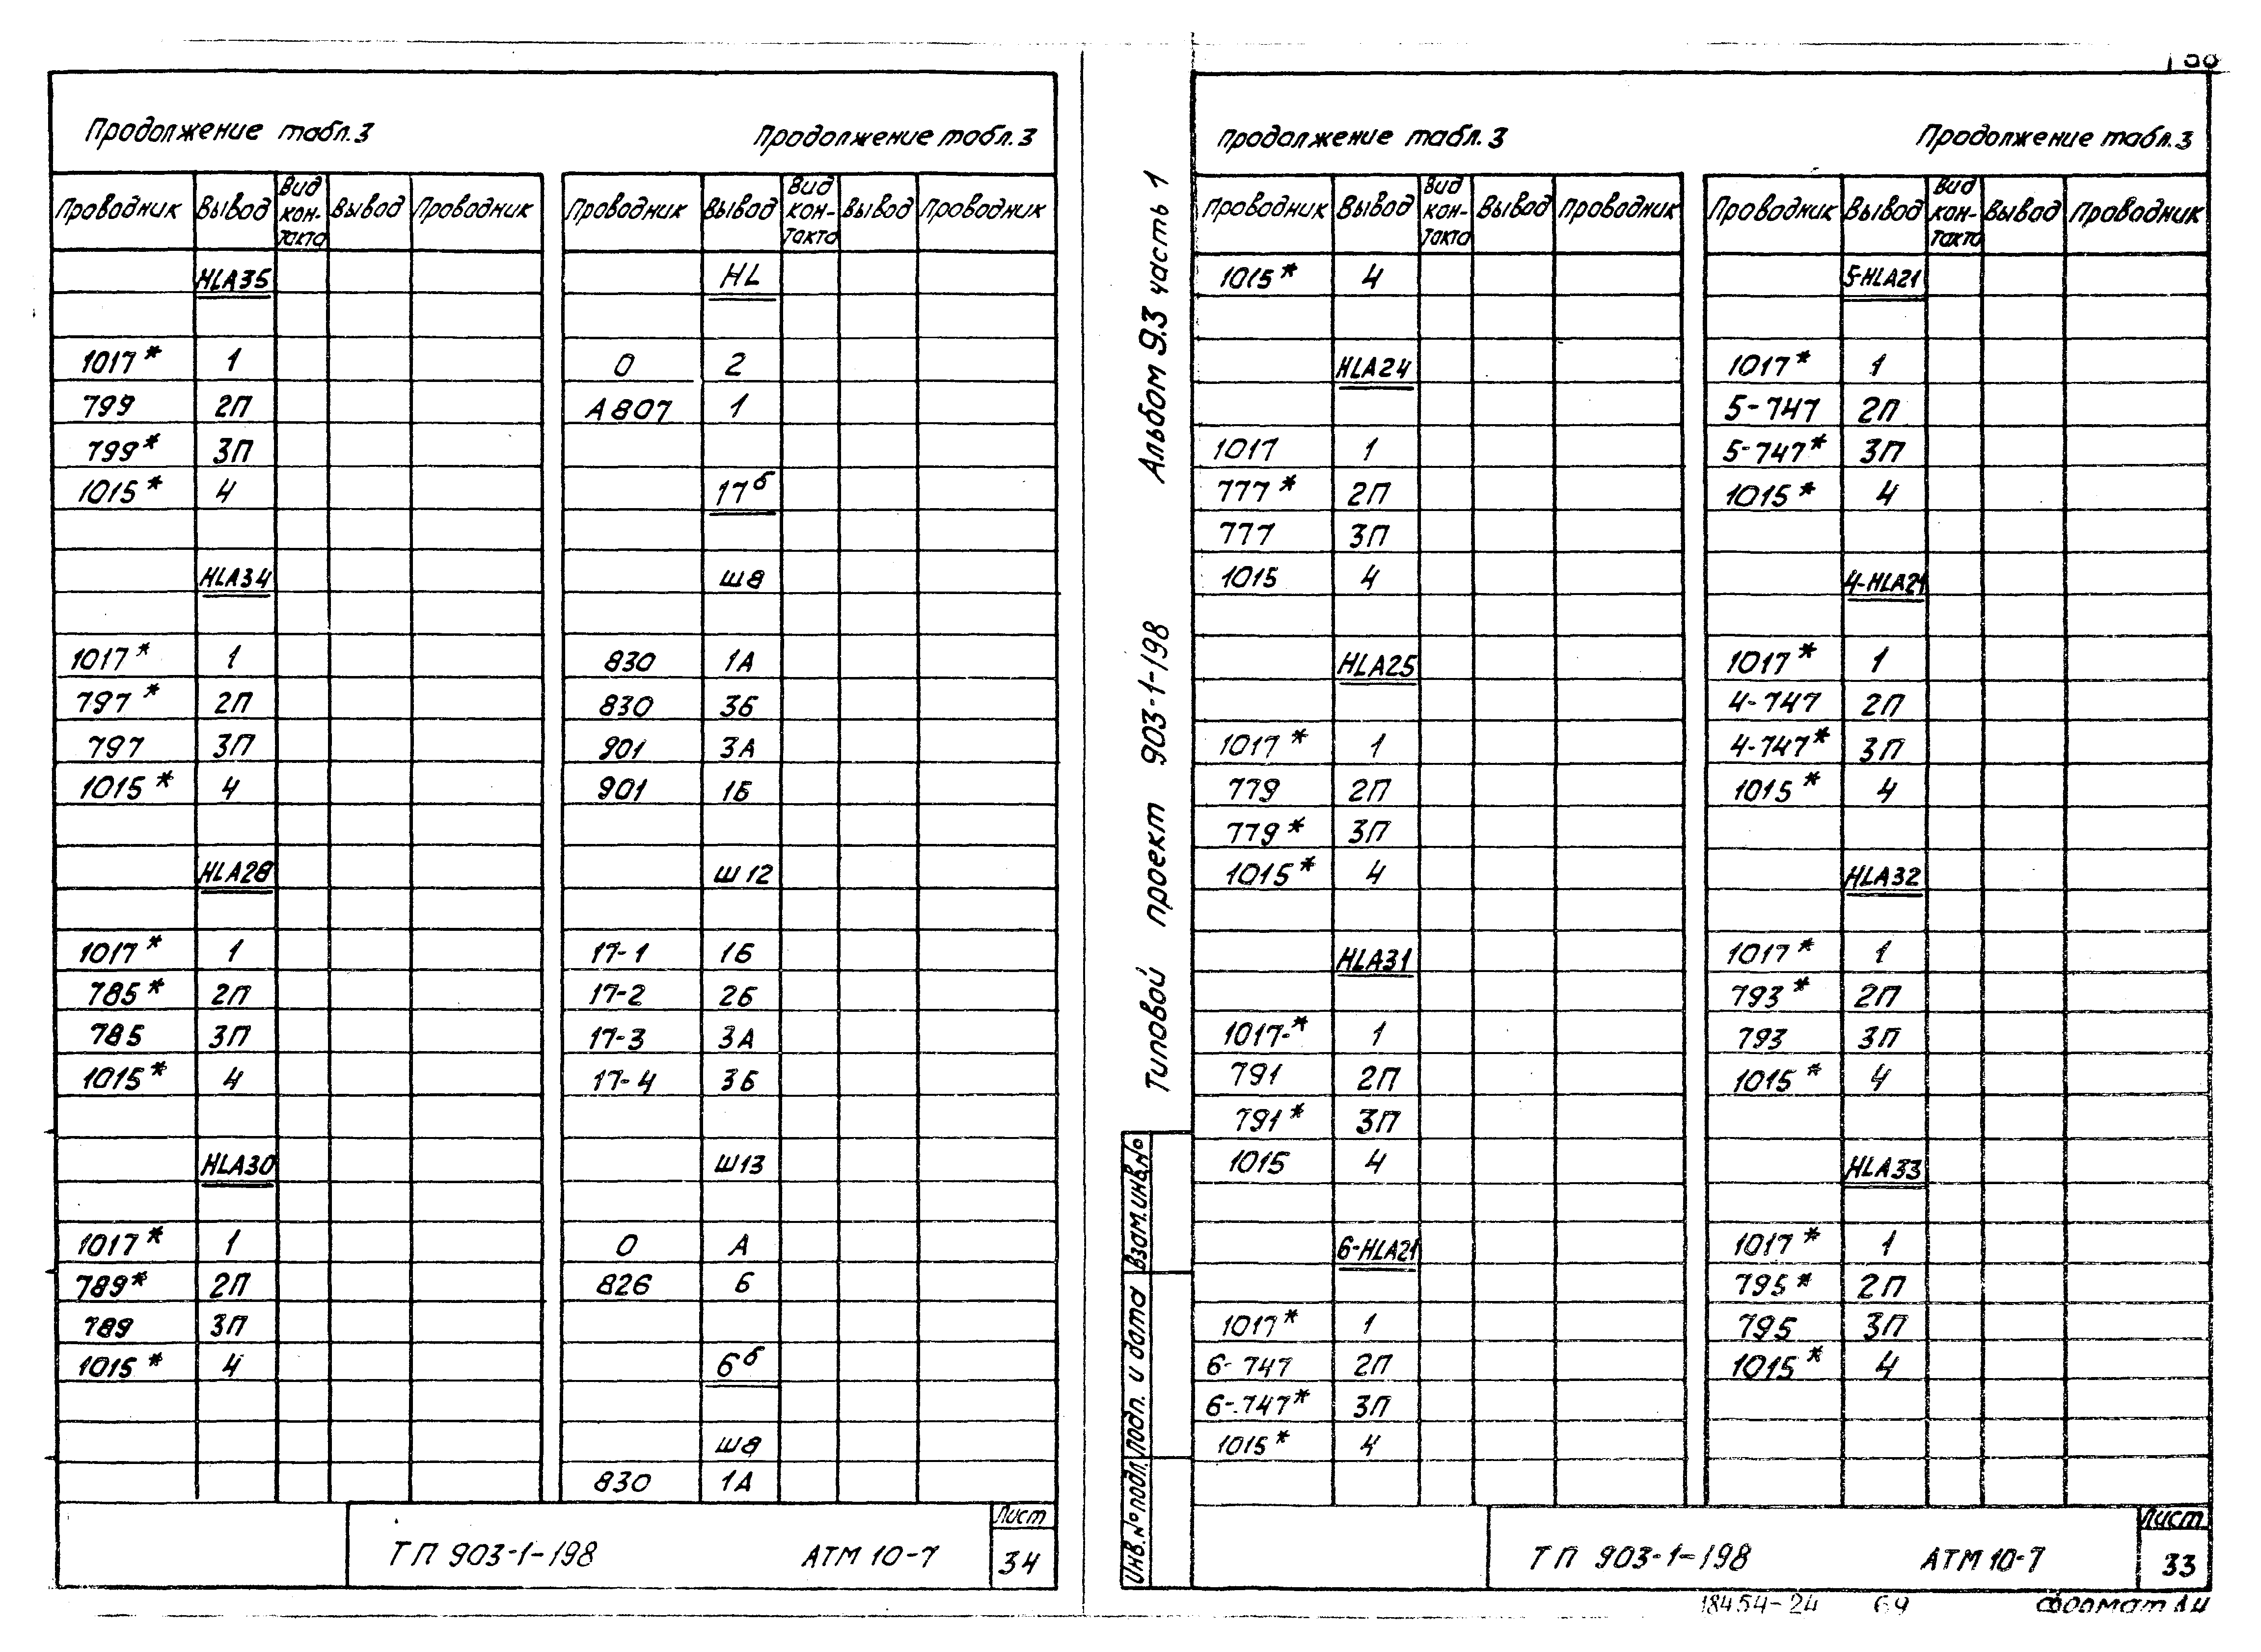 Продолжение табл.3
Продолжение табл.3
Проводник Вывод Вид кон-такта Вывод Проводник
HLA35
1017* 1
799 2П
799* 3П
1015* 4
HLA34
1017* 1
797* 2П
797 3П
1015* 4
HLA28
1017* 1
785* 2П
785 3П
1015* 4
HLA30
1017* 1
789* 2П
789 3П
1015* 4
Проводник Вывод Вид кон-такта Вывод Проводник
HL
0 2
А807 1
17б
Ш8
830 1А
830 3Б
901 3А
901 1Б
Ш12
17-1 1Б
17-2 2Б
17-3 3А
17-4 3Б
Ш13
0 А
826 Б
6б
Ш8
830 1А
ТП 903-1-198 АТМ 10-7
Лист
34
Альбом 9.3 часть 1
Типовой проект 903-1-198
Взам.инв.№
Подп. и дата
Инв.№ подл.
Продолжение табл.3
Продолжение табл.3
Проводник Вывод Вид кон-такта Вывод Проводник
1015* 4
HLA24
1017 1
777* 2П
777 3П
1015 4
HLA25
1017* 1
779 2П
779* 3П
1015* 4
HLA31
1017-* 1
791 2П
791* 3П
1015 4
6-HLA21
1017* 1
6-747 2П
6-.747* 3П
1015* 4
Проводник Вывод Вид кон-такта Вывод Проводник
5-HLA21
1017* 1
5-747 2П
5-747* 3П
1015* 4
4-HLA21
1017* 1
4-747 2П
4-747* 3П
1015* 4
HLA32
1017* 1
793* 2П
793 3П
1015* 4
HLA33
1017* 1
795* 2П
795 3П
1015* 4
ТП 903-1-198 АТМ 10-7
Лист
33
18454-24 69